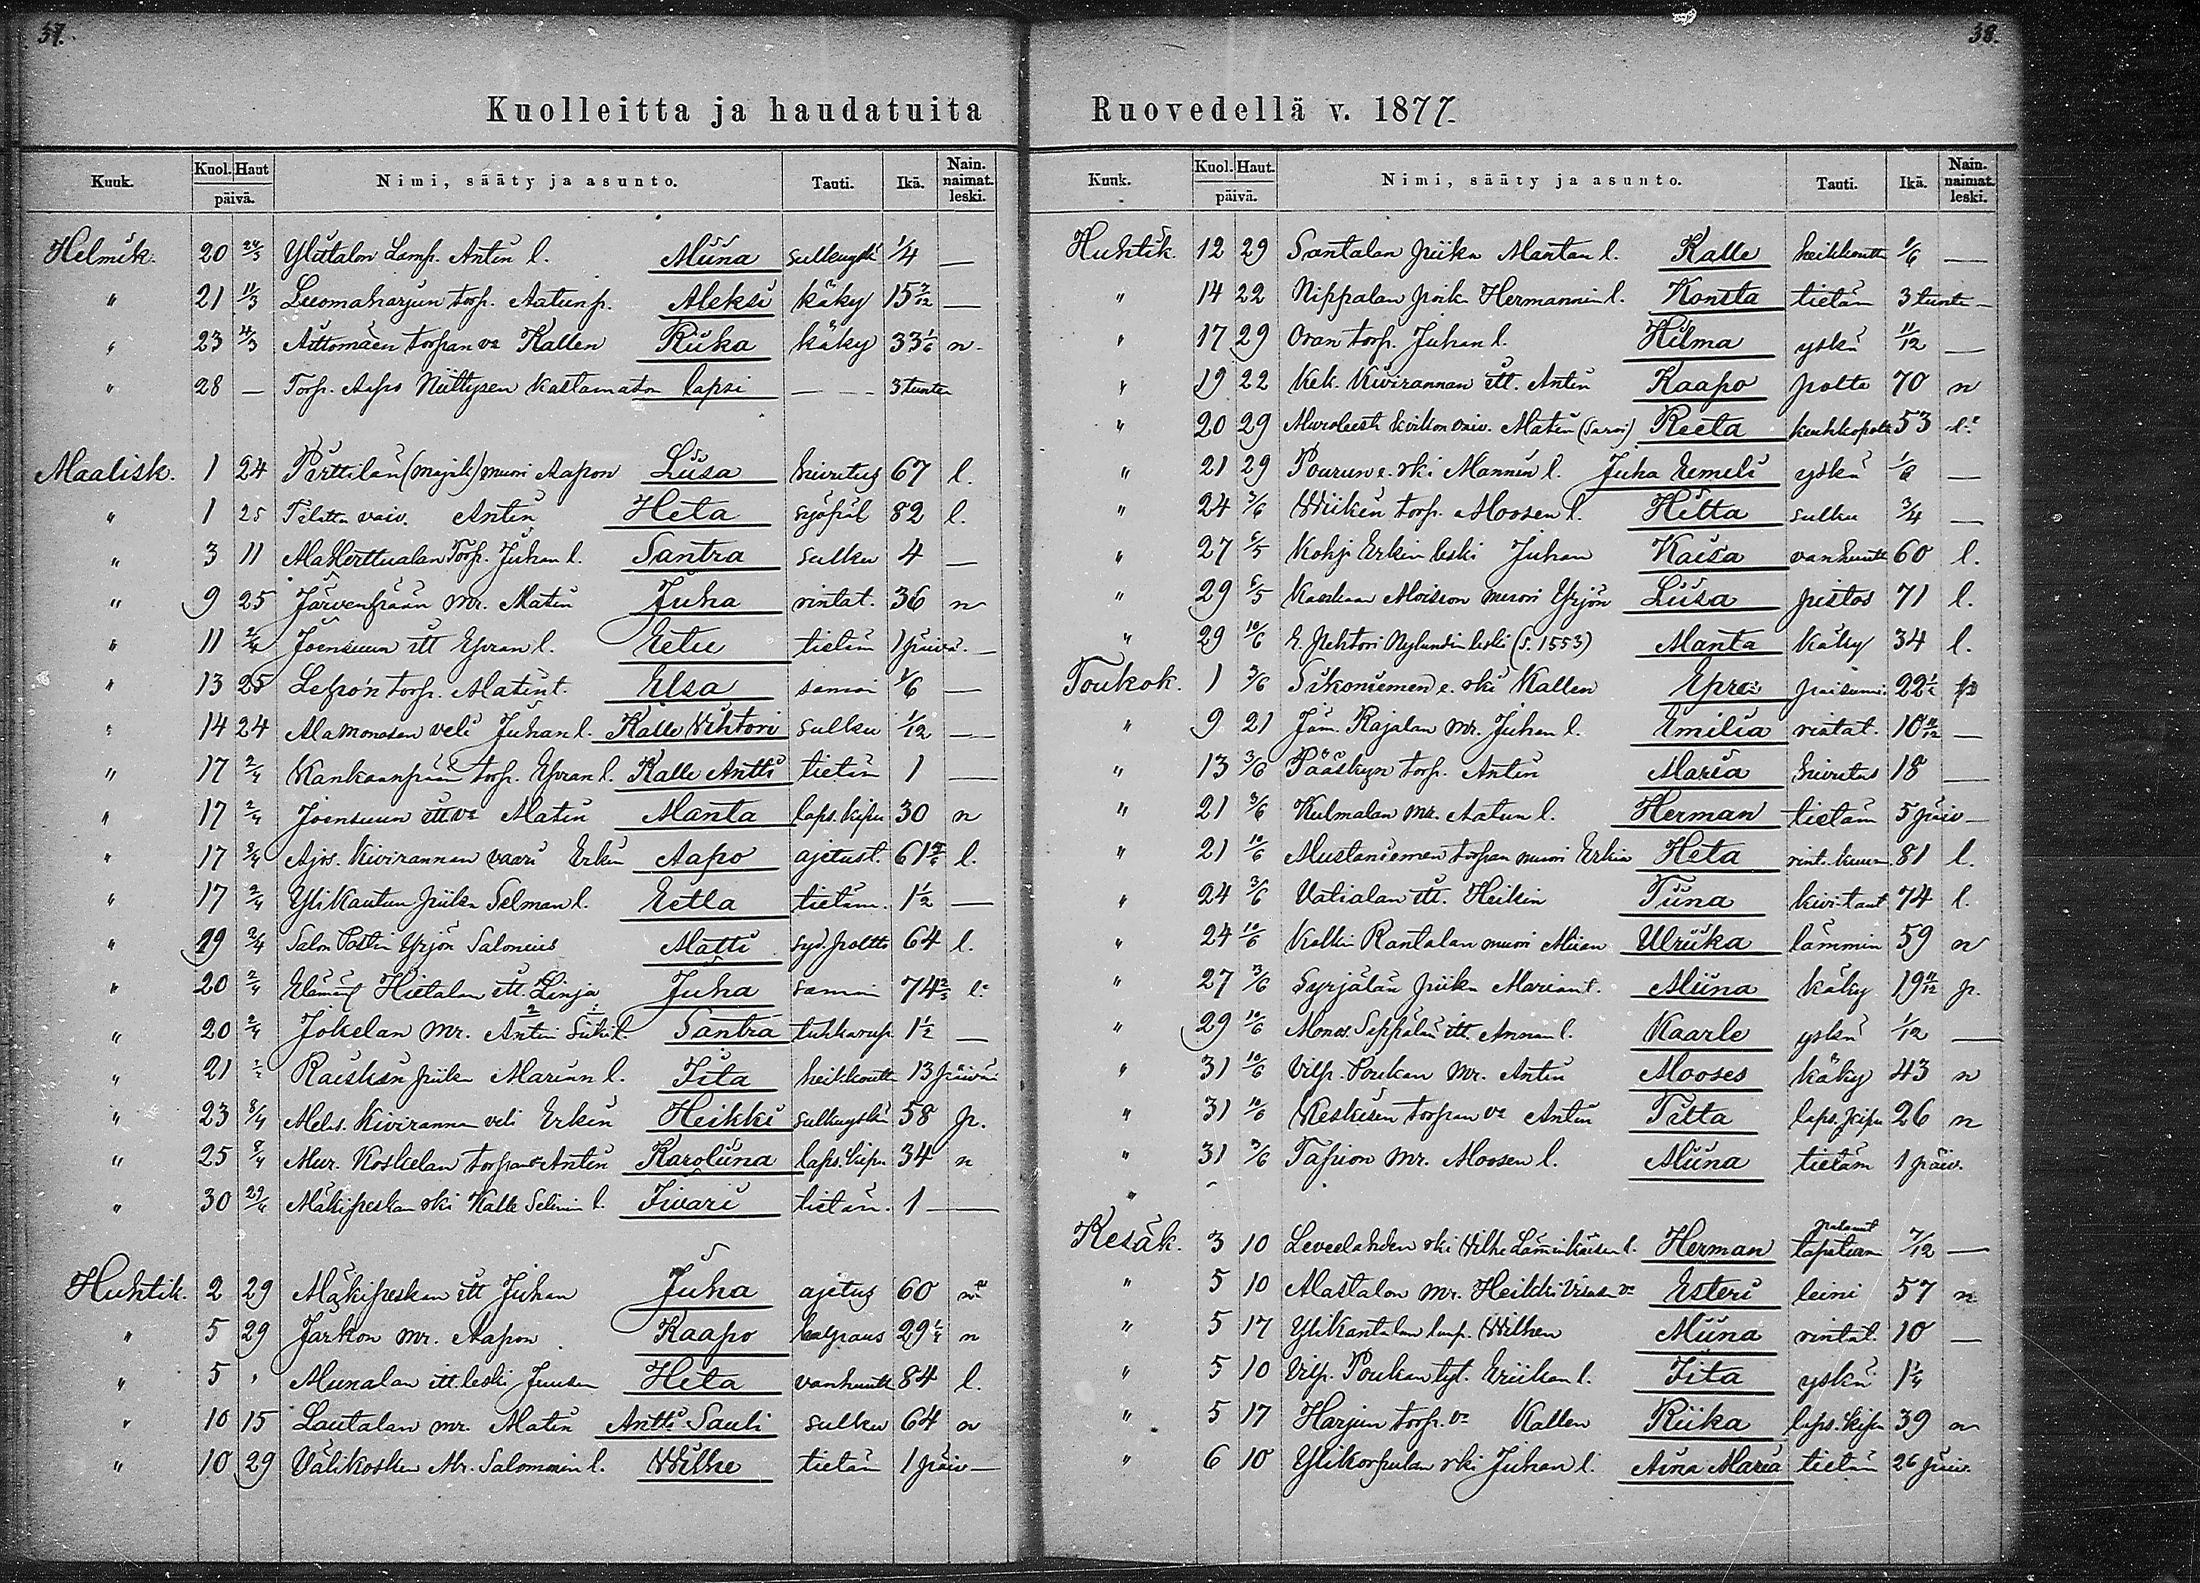 37.
Kuolleitta ja haudatuita
Kuuk. Kuol. Haut päivä. Nimi, sääty ja asunto. Tauti. Ikä. Nain. naimat. leski.
Helmik. 20 Ylittalon Lamp. Antin l. Miina 1/4 —
" 21 11/3 Luomaharjun torp. Aatun p. Aleksi käky 15 —
" 23 4/3 torpan va Kallen Riika käky 33 1/6 n
" 28 — Torp. Aapo Niittysen kastamaton lapsi — 3 tuntia
Maalisk. 1 24 Pirttilän muori Aapon Liisa kivitus 67 l.
" 1 25 vaiv. Antin Heta 82 l.
" 3 11 Torp. Juhan l. Santra sulku 4 —
" 9 25 Järvenpään mr. Matin Juha rintat. 36 n
" 11 2/4 Joensuun itl Epran l. Eetu tietön 1 päivä. —
" 13 25 torp. Matin t. Elsa samoin 1/6 —
" 14 24 veli Juhan l. Kalle Vihtori sulku 1/12 —
" 17 2/4 Kankaanpään torp. Epran l. Kalle Antti tietön 1 —
" 17 2/4 Joensuun itl va Matin Manta laps. kipu 30 n
" 17 2/4 Ajos. Kivirannan vaari Erkin Aapo ajetust. 61 l.
" 17 2/4 Ylikautun piika Selman l. Eetla tietön. 1 1/2 —
" 19 2/4 Salon Postin Yrjön Salonius Matti syd. poltto 64 l.
" 20 2/4 Hietalan itl. Linja Juha samoin 74 l.
" 20 2/4 Jokelan mr. Antin l. Santra 1 1/2 —
" 21 Raiskin piika Marian l. Iita heikkoutta 13 päivää
" 23 8/4 Kiviranna veli Erkin Heikki sulkuyskä 58 p.
" 25 8/4 Mur. Koskelan torpan va Antin Karoliina laps. kipu 34 n
" 30 29/4 Mäkipeskan rki Kalle l. Iivari tietön. 1 —
Huhtik. 2 29 Mäkipeskan itl Juhan Juha ajetus 60 n
" 5 29 Jarkon mr. Aapon Kaapo halpaus 29 1/4 n
" 5 " Munalan itl. leski Juusen Heta vanhuutta 84 l.
" 10 15 Lautalan mr. Matin Antti Sauli sulku 64 n
" 10 29 Välikosken Mr. Salomonin l. Wilhe tietön 1 päiv —
38.
Ruovedellä v. 1877.
Kuuk. Kuol. Haut. päivä. Nimi, sääty ja asunto. Tauti. Ikä. Nain. naimat. leski.
Huhtik. 12 29 Santalan piika Mantan l. Kalle heikkoutta 1/6 —
" 14 22 Nippalan poik. Hermannin l. Konsta tietön 3 tuntia —
" 17 29 Oran torp. Juhan l. Hilma yskä 11/12 —
" 19 22 Kek. Kivirannan itl. Antin Kaapo poltto 70 n
" 20 29 vaiv. Matin Reeta keuhkopoltto 53 l.
" 21 29 Pourun e. rki Mannin l. Juha Eemeli yskä —
" 24 3/6 Wiikin torp. Moosen l. Hilta sulku 3/4 —
" 27 6/5 Erkin leski Juhan Kaisa vanhuutta 60 l.
" 29 6/5 Moision muori Yrjön Liisa pistos 71 l.
" 29 10/6 E. Rehtori Nylundin leski (s. 1553) Manta käky 34 l.
Toukok. 1 3/6 Siikoniemen e. rki Kallen Epra 22 1/2 p
" 9 21 Jäm. Rajalan mr. Juhan l. Emilia rintat. 10 —
" 13 3/6 Pääskyn torp. Antin Maria kivitus 18 —
" 21 3/6 Kulmalan mr. Aatun l. Herman tietön 5 päiv —
" 21 10/6 Mustaniemen torpan muori Erkin Heta 81 l.
" 24 3/6 Vatialan itl. Heikin Tiina 74 l.
" 24 10/6 Rantalan muori Miian Ulriika lämmin 59 n
" 27 3/6 Syrjälän piika Marian t. Miina käky 19 p.
" 29 10/6 Monos. Seppälän itl. Annan l. Kaarle yskä 1/12 —
" 31 10/6 Vilp. Poukan mr. Antin Mooses käky 43 n
" 31 10/6 Keskisen torpan va Antin Tilta laps. kipu 26 n
" 31 3/6 Tapion mr. Moosen l. Miina tietön 1 päiv.
"
Kesäk. 3 10 Leveelahden rki Vilhe l. Herman palanut 7/12 —
" 5 10 Alastalon mr. Heikki va Esteri leini 57 n
" 5 17 Ylikantalan lamp. Wilhen Miina rintat. 10 —
" 5 10 Vilp. Poukan tyt. Eriikan l. Iita yskä 1 1/4
" 5 17 Harjun torp. va Kallen Riika laps. kipu 39 n
" 6 10 Ylikorpulan rki Juhan l. Aina Maria tietön 26 päiv.